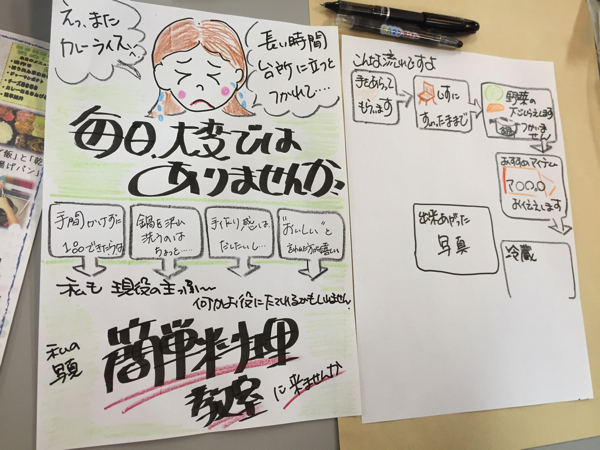 えっ、また
カレーライス、、
長い時間
台所に立つと
つかれて....
毎日、大変では
ありませんか?
手間かけずに
鍋を沢山
洗うのは
ちょっと....
手作り感は
だしたいし...
"おいしい"と
私も 現役の主ふ〜
何かお役にたてれるかもしれません
私の
写真
簡単料理
教室 に来ませんか
こんな流れですよ
手をあらって
もらいます
いすに
すわったままで
野菜の
下ごしらえします
つかいません
おすすめアイテム
出来あがった
写真
冷蔵